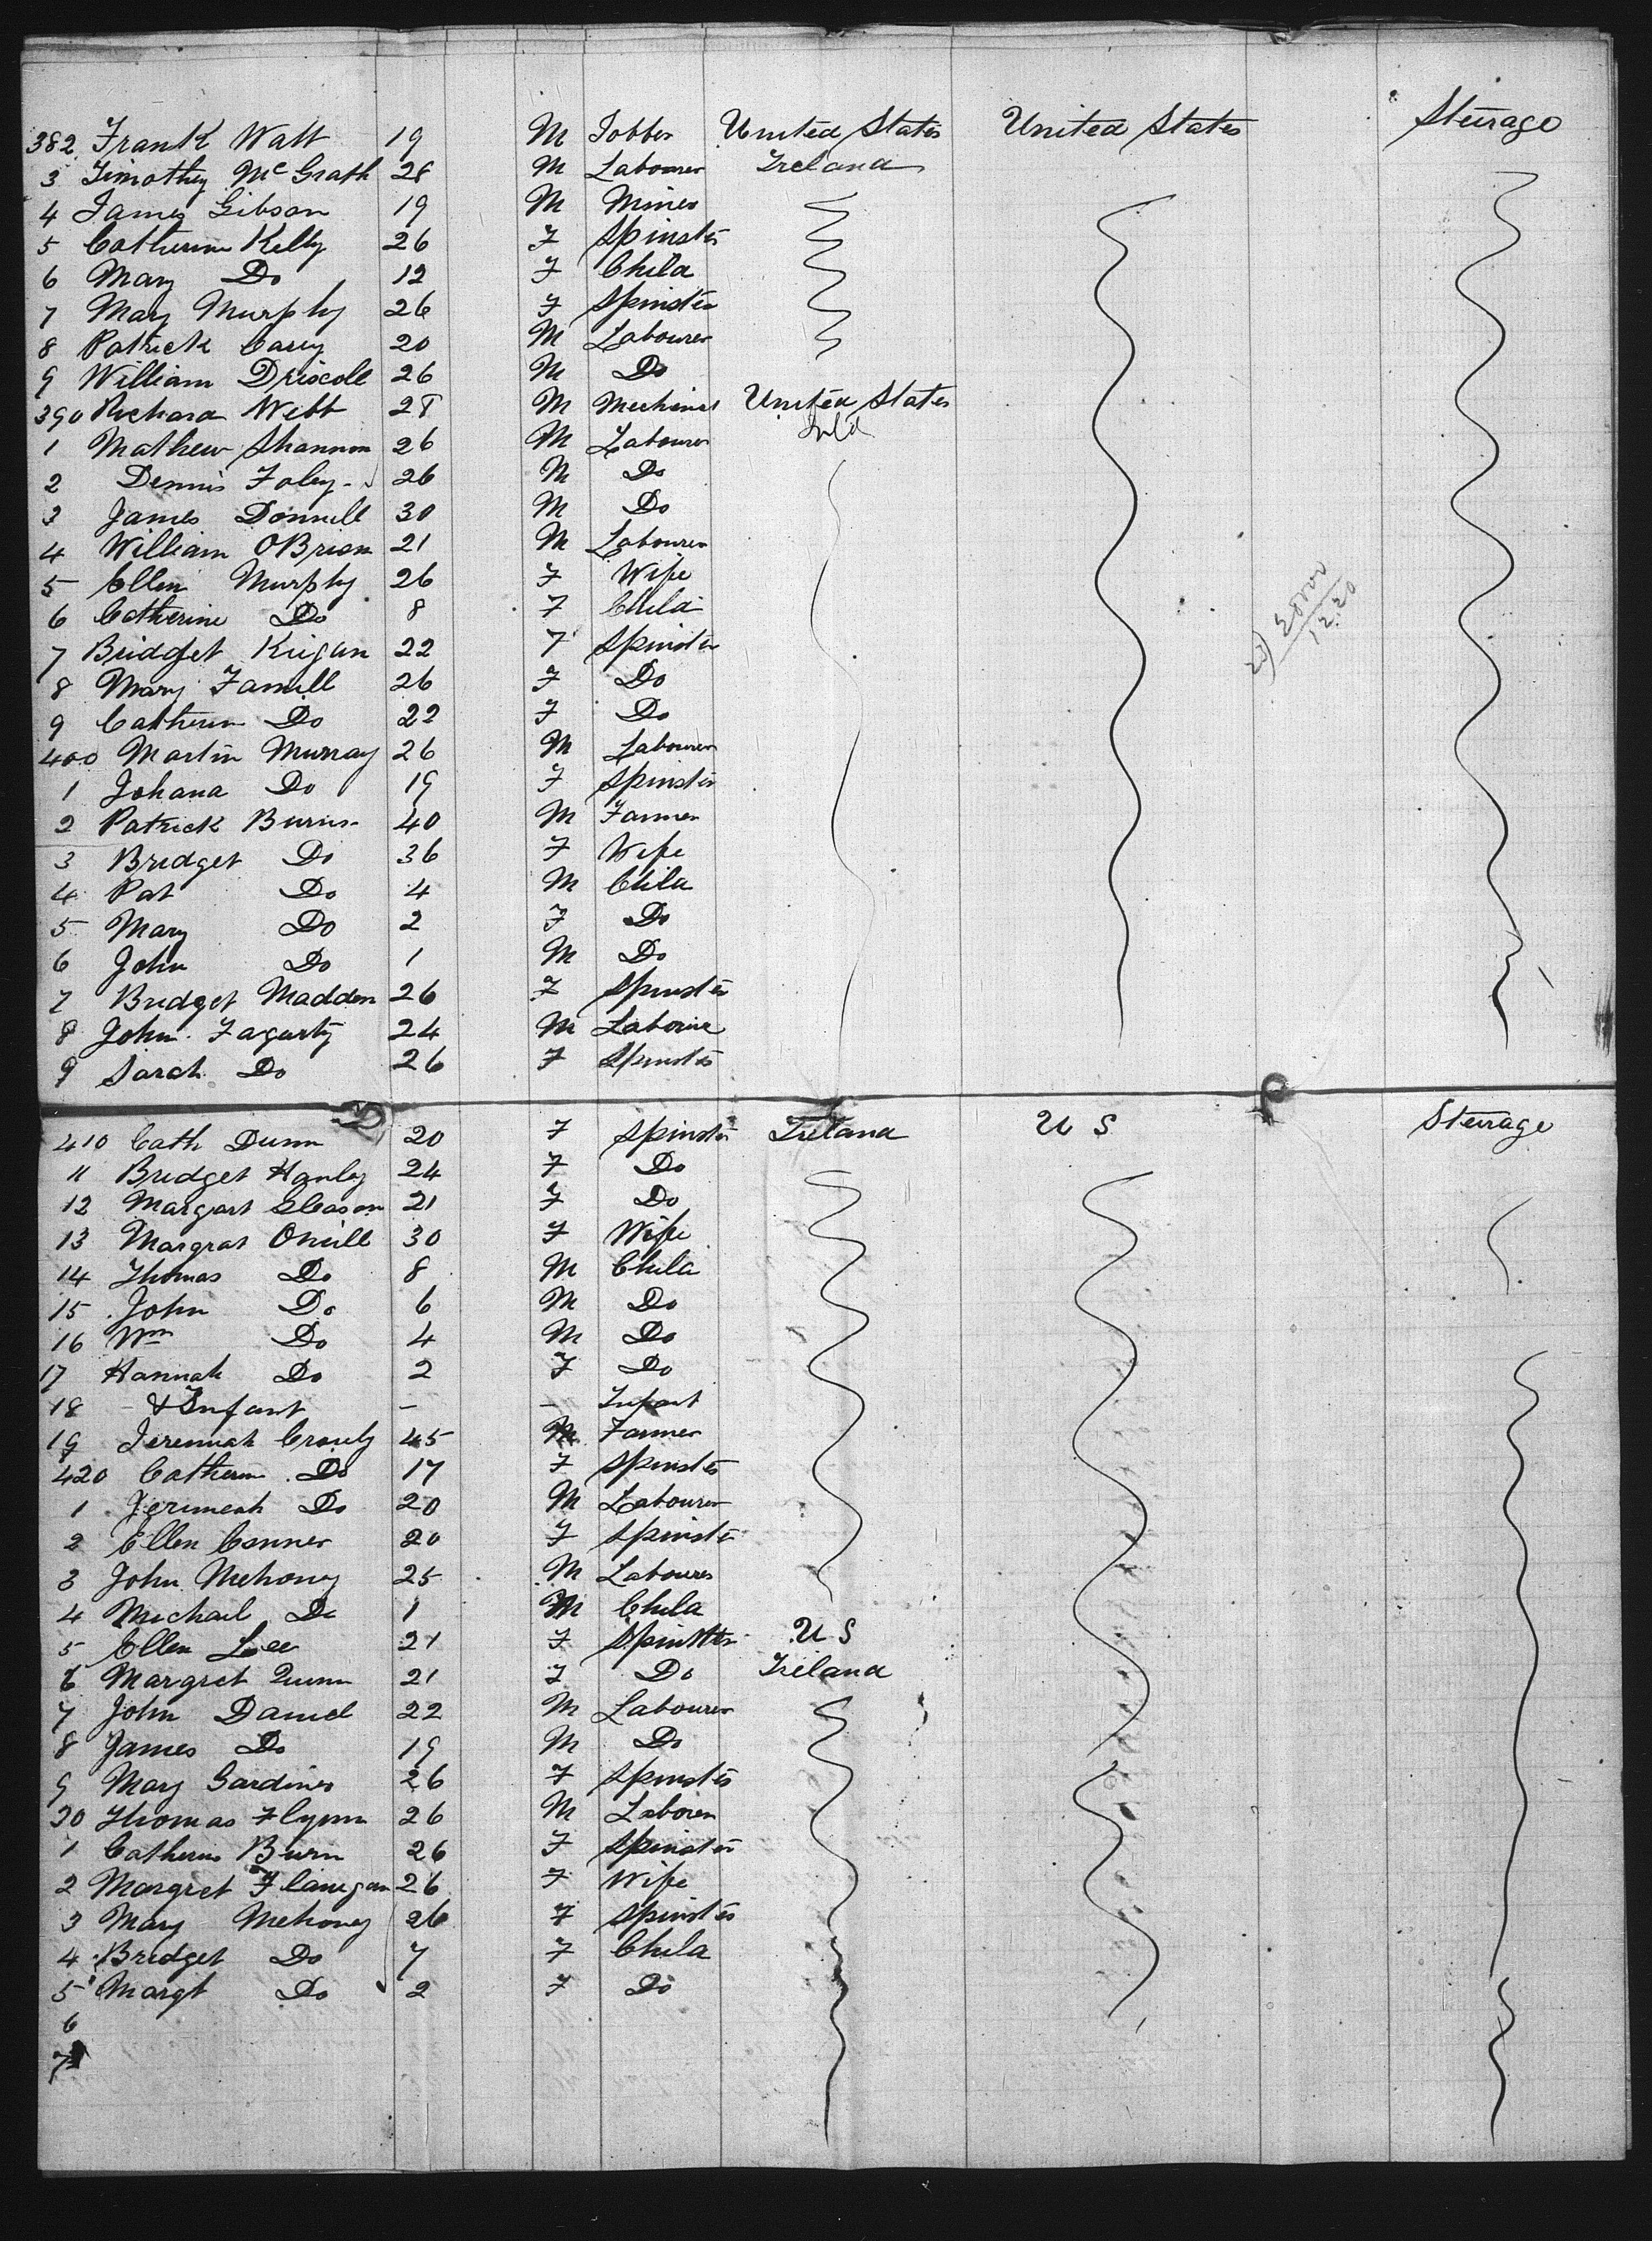 382 Frank Watt 19 M Jobber United States United States Steirage
3 Timothy McGrath 28 M Labourer Ireland
4 James Gibson 19 M Miner
5 Catherine Kelly 26 F Spinster
6 Mary Do 12 F Child
7 Mary Murphy 26 F Spinster
8 Patrick Carey 20 M Labourer
9 William Driscoll 26 M Do
390 Richard Webb 28 M United States
1 Mathew Shannon 26 M Labourer
2 Dennis Foley 26 M Do
3 James Donnell 30 M Do
4 William OBrien 21 M Labourer
5 Ellen Murphy 26 F Wife
6 Catherine Do 8 F Child
7 Bridget Keigan 22 F Spinster
8 Mary Farrell 26 F Do
9 Catherin Do 22 F Do
400 Martin Murray 26 M Labourer
1 Johana Do 19 F Spinster
2 Patrick Burns 40 M Farmer
3 Bridget Do 36 F Wife
4 Pat Do 4 M Child
5 Mary Do 2 F Do
6 John Do 1 M Do
7 Bridget Madden 26 F Spinster
8 John Fagarty 24 M Laborer
9 Sarah Do 26 F Spinster
410 Cath Dunn 20 F Spinster Ireland U S Steirage
11 Bridget Hanley 24 F Do
12 Margart Gleason 21 F Do
13 Margrat Oneill 30 F Wife
14 Thomas Do 8 M Child
15 John Do 6 M Do
16 Wm Do 4 M Do
17 Hannah Do 2 F Do
18 & Infant – – Infant
19 Jeremiah Crowly 45 M Farmer
420 Catherin Do 17 F Spinster
1 Jerimeah Do 20 M Labourer
2 Ellen Conner 20 F Spinster
3 John Mehoney 25 M Labourer
4 Michael Do 1 M Child
5 Ellen Lee 21 F Spinster U S
6 Margret Quinn 21 F Do Ireland
7 John Daniel 22 M Labourer
8 James Do 19 M Do
9 Mary Gardiner 26 F Spinster
30 Thomas Flynn 26 M Laborer
1 Catherin Burn 26 F Spinster
2 Margret Flanigan 26 F Wife
3 Mary Mehoney 26 F Spinster
4 Bridget Do 7 F Child
5 Margt Do 2 F Do
6
7